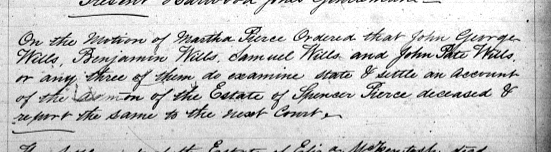 Present Harwood Jones Gentleman
On the Motion of Martha Pierce Ordered that John George
Wills, Benjamin Wills, Samuel Wills, and John Pate Wills
or any three of them do examine state & settle an account
of the admon of the Estate of Spencer Pierce deceased &
report the same to the next Court.
of the Estate of McKentosh decd